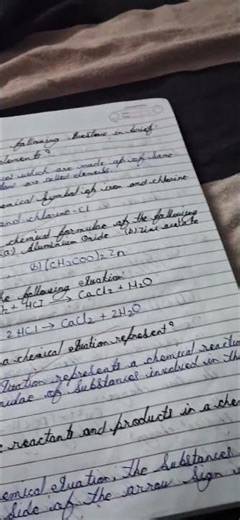 following question in brief
elements?
which are made of of same
are called elements.
chemical symbol of iron and chlorine
and chlorine-Cl
chemical formulae of the following
(a) Aluminium Oxide (b) Zinc acetate
(b) (CH3COO)2 Zn
the following equation:
+ HCl → CaCl2 + H2O
2HCl → CaCl2 + 2H2O
a chemical equation represent?
equation represents a chemical reaction
of substances involved in the
reactants and products in a che
emical equation, the substances
side of the arrow sign